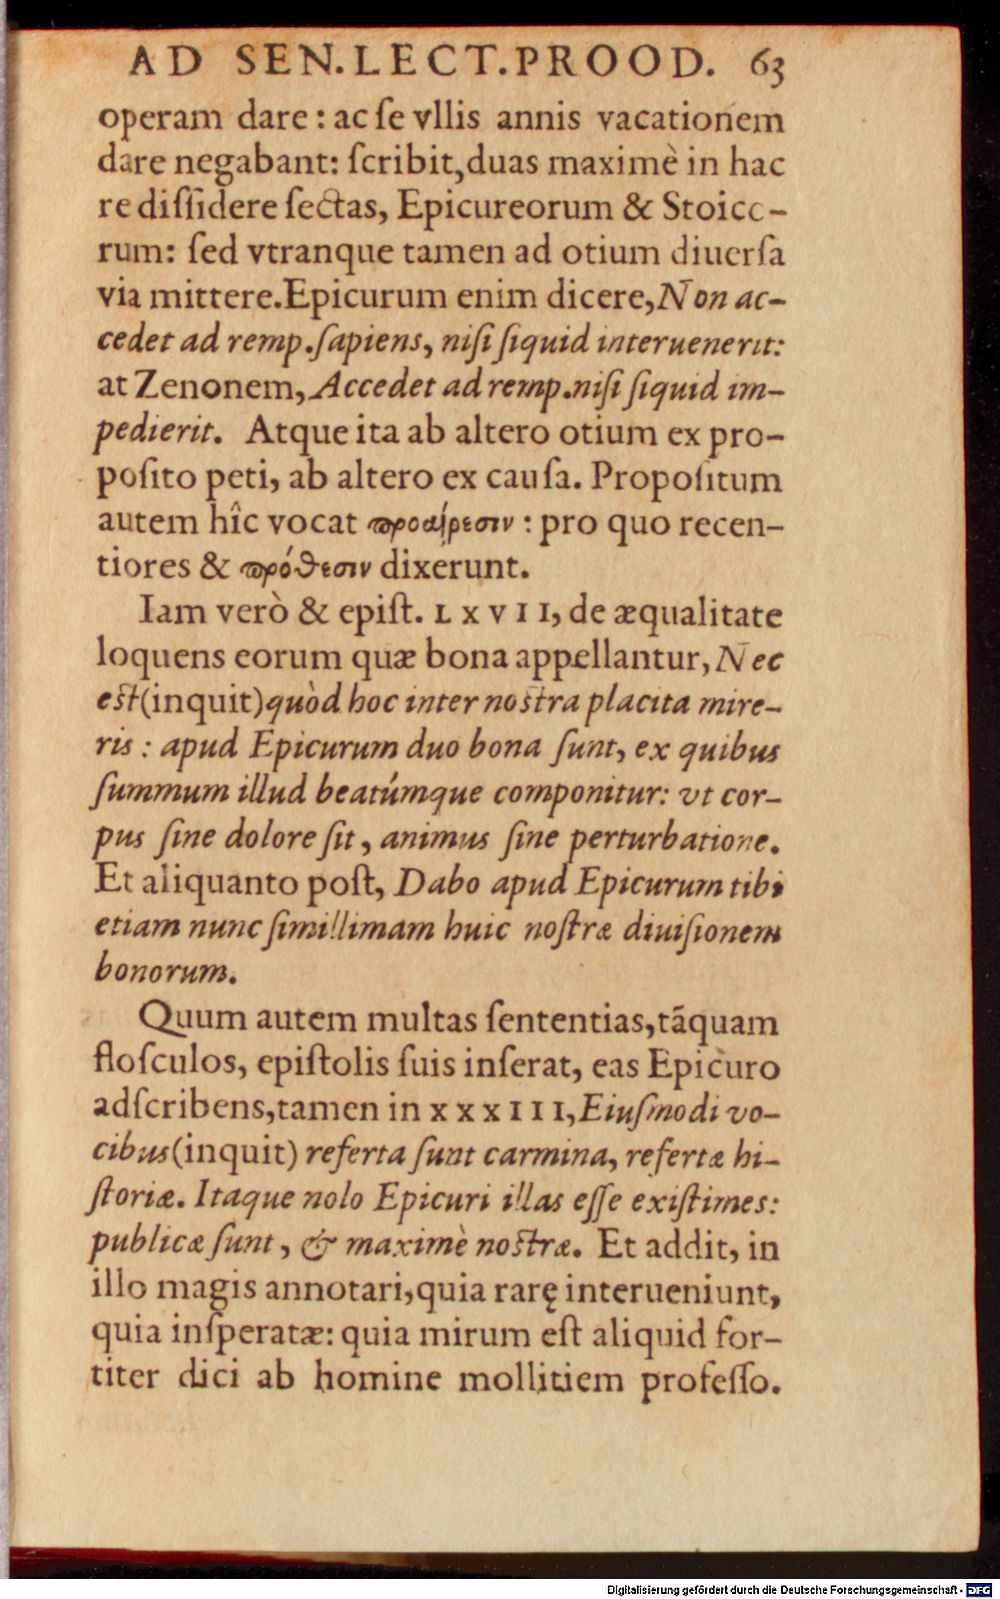 AD SEN.LECT.PROOD. 63
operam dare : ac ſe vllis annis vacationem
dare negabant: ſcribit,duas maximè in hac
re diſſidere ſectas, Epicureorum & Stoico-
rum: ſed vtranque tamen ad otium diuerſa
via mittere.Epicurum enim dicere,Non ac-
cedet ad remp.ſapiens, niſi ſiquid interuenerit:
at Zenonem,Accedet ad remp.niſi ſiquid im-
pedierit. Atque ita ab altero otium ex pro-
poſito peti, ab altero ex cauſa. Propoſitum
autem hîc vocat ϖροαίρεσιν : pro quo recen-
tiores & ϖρόθεσιν dixerunt.
Iam verò & epiſt. LXVII, de æqualitate
loquens eorum quæ bona appellantur,Nec
eſt(inquit)quòd hoc inter noſtra placita mire-
ris : apud Epicurum duo bona ſunt, ex quibus
ſummum illud beatúmque componitur: vt cor-
pus ſine dolore ſit, animus ſine perturbatione.
Et aliquanto poſt, Dabo apud Epicurum tibi
etiam nunc ſimillimam huic noſtræ diuiſionem
bonorum.
Quum autem multas ſententias,tãquam
floſculos, epiſtolis ſuis inſerat, eas Epicuro
adſcribens,tamen in XXXIII,Eiuſmodi vo-
cibus(inquit) referta ſunt carmina, refertæ hi-
ſtoriæ. Itaque nolo Epicuri illas eſſe exiſtimes:
publicæ ſunt, & maximè noſtræ. Et addit, in
illo magis annotari,quia rarę interueniunt,
quia inſperatæ: quia mirum eſt aliquid for-
titer dici ab homine mollitiem profeſſo.
Digitalisierung gefördert durch die Deutsche Forschungsgemeinschaft - DFG